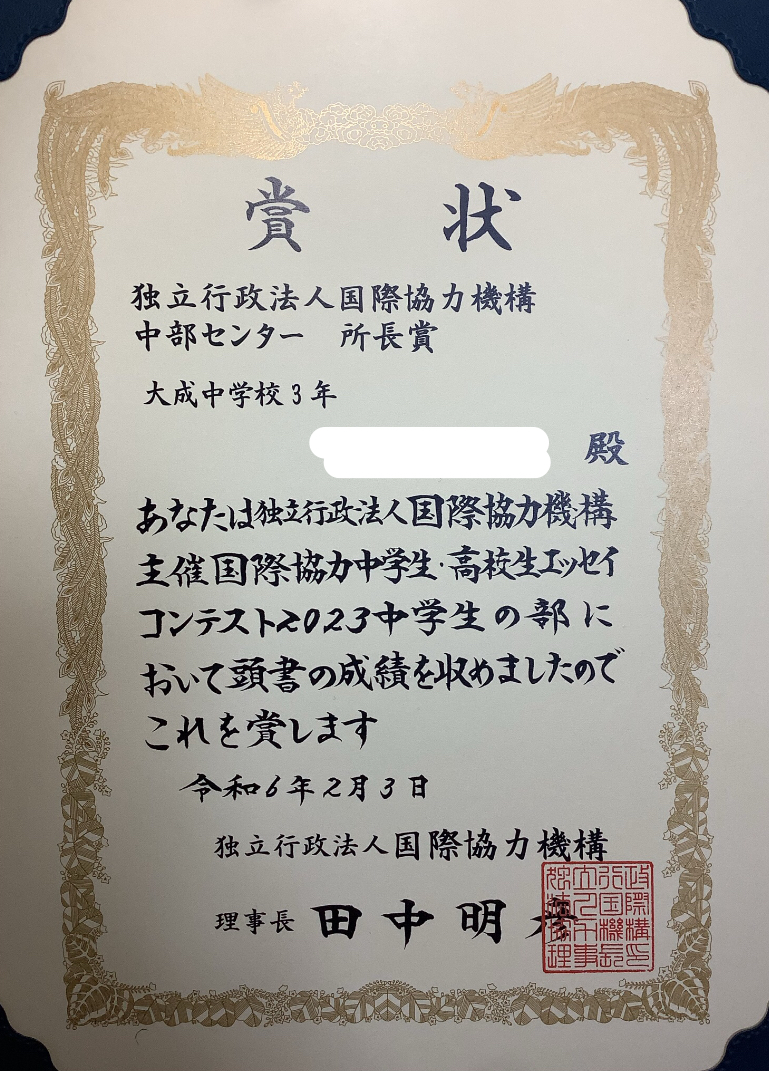 賞状
独立行政法人国際協力機構
中部センター 所長賞
大成中学校3年
殿
あなたは独立行政法人国際協力機構
主催国際協力中学生・高校生エッセイ
コンテスト2023中学生の部に
おいて頭書の成績を収めましたので
これを賞します
令和6年2月3日
独立行政法人国際協力機構
理事長 田中明彦